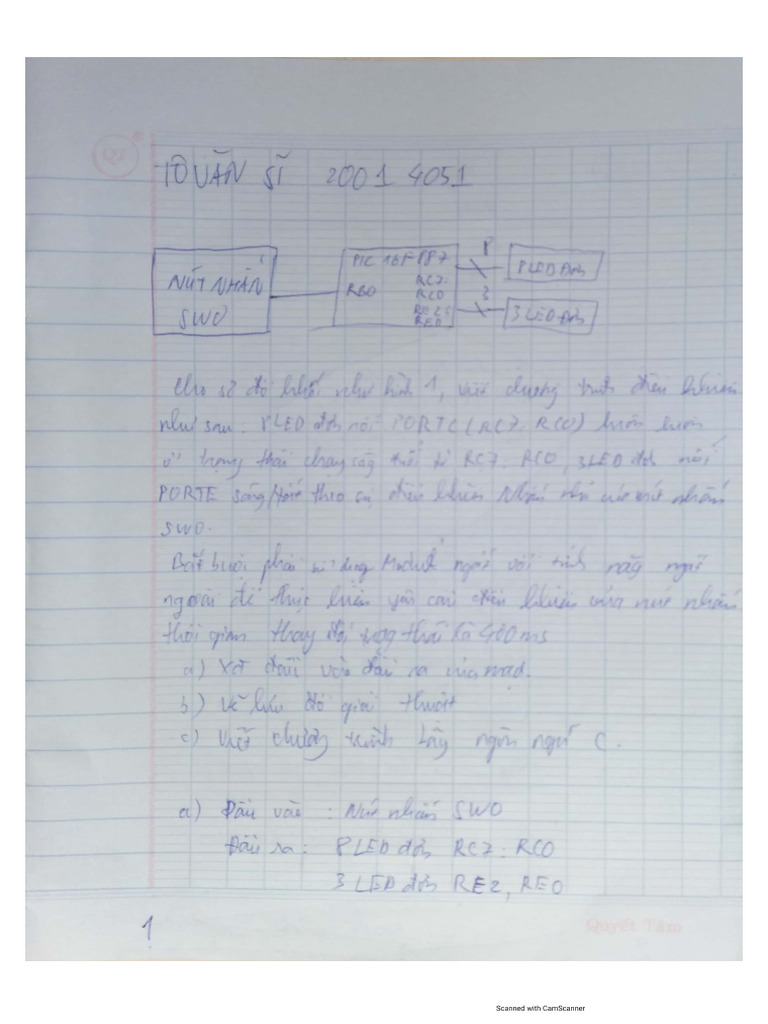 TÔ VĂN SĨ 2001 4051
NÚT NHẤN
SW0
PIC 16F887
RB0
RC7:
RC0
RE2:
RE0
8
8 LED đơn
3
3 LED đơn
Cho sơ đồ khối như hình 1, viết chương trình điều khiển
như sau: 8 LED đơn nối PORTC (RC7: RC0) luôn luôn
ở trạng thái chạy từ RC7: RC0, 3 LED đơn nối
PORTE sáng/tắt theo sự điều khiển nút nhấn
SW0.
Bắt buộc phải sử dụng Module ngắt với tính năng ngắt
ngoài để thực hiện yêu cầu điều khiển của nút nhấn
thời gian thay đổi trạng thái là 400ms
a) đầu vào đầu ra của
b) Vẽ lưu đồ giải thuật
c) Viết chương trình bằng ngôn ngữ C.
a) Đầu vào : Nút nhấn SW0
Đầu ra : 8 LED đơn RC7: RC0
3 LED đơn RE2, RE0
1
QT
Quyết Tâm
Scanned with CamScanner